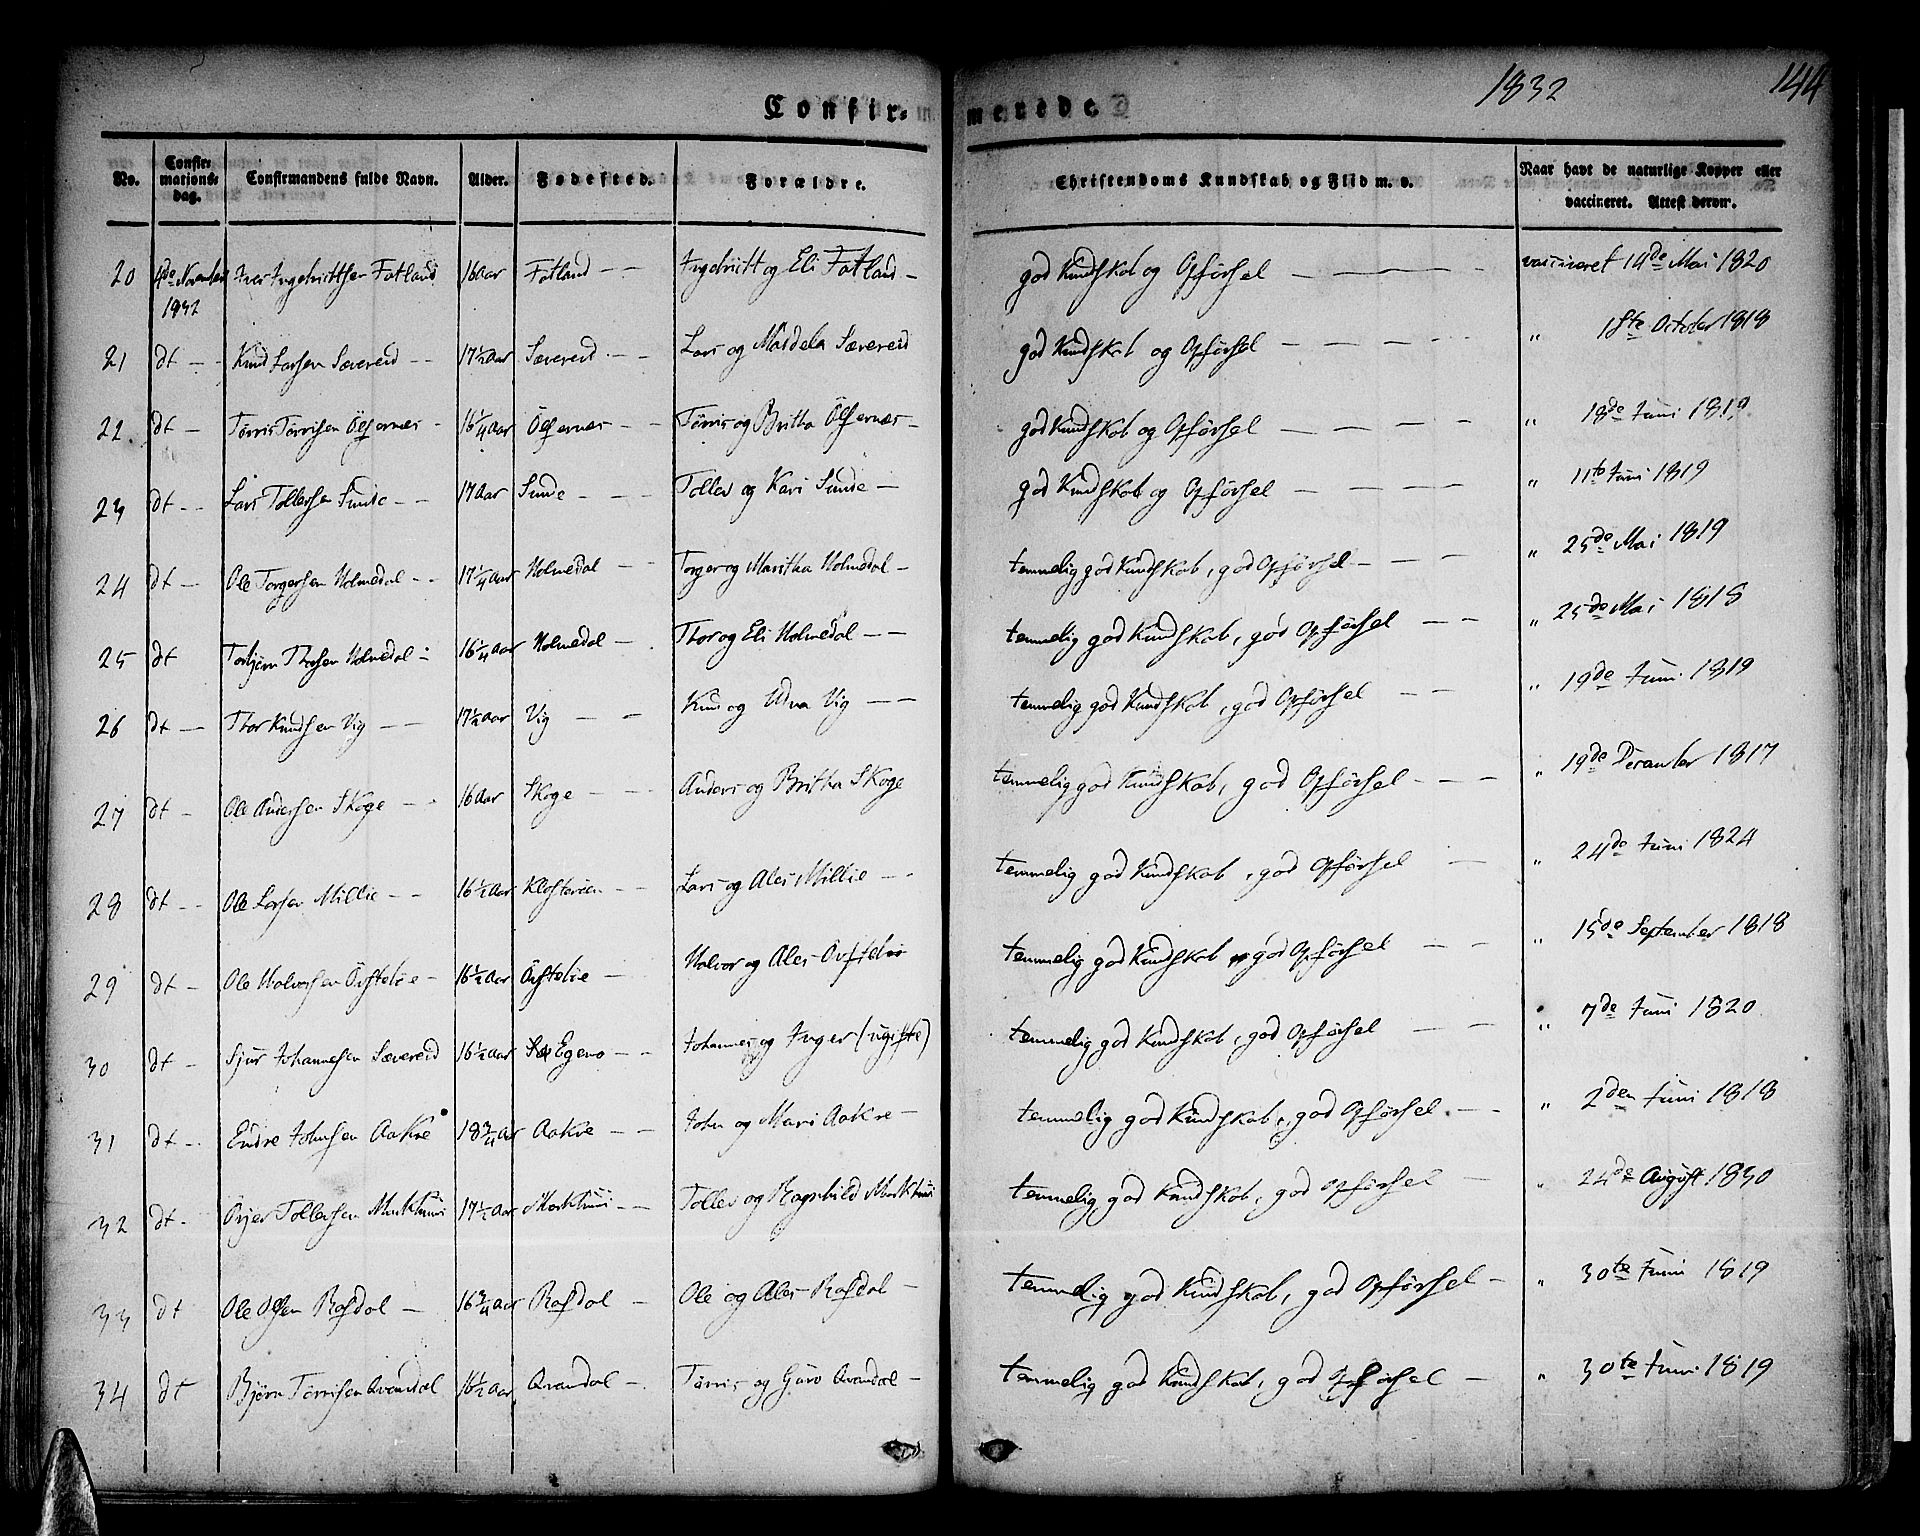 1832
144
Confir-
merede.
No.
Confir-
mations-
dag.
Confirmandens fulde Navn.
Alder.
Fødested.
Forældre.
Christendoms Kundskab og Flid m. v.
Naar havt de naturlige Kopper eller
vaccineret. Attest derom.
20 4de November Iver Ingebrittsen Fatland 16 Aar Fatland - - Ingebritt og Eli Fatland - god Kundskab og Opførsel - - - - vaccineret 14de Mai 1820
1832
21 dt - - Knud Larsen Sævereid - - 17 1/2 Aar Sævereid - - Lars og Sævereid god Kundskab og Opførsel - - - - " 18te October 1818
22 dt - Tørris Tørrisen Ølfernæs - 16 1/4 Aar Ølfernæs - Tørris og Britha Ølfernæs - god Kundskab og Opførsel - - - - " 18de Juni 1819
23 dt - - Lars Tollefsen Sunde - - 17 Aar Sunde - - - Tollev og Kari Sunde - god Kundskab og Opførsel - - - - " 11te Juni 1819
24 dt - Ole Torgersen Holmedal - - 17 1/4 Aar Holmedal - - Torger og Maritha Holmedal - temmelig god Kundskab, god Opførsel - - - " 25de Mai 1819
25 dt Torbjørn Thorsen Holmedal - 16 1/4 Aar Holmedal - Thor og Eli Holmedal - - temmelig god Kundskab, god Opførsel - - " 25de Mai 1818
26 dt - Thor Knudsen Vig - - 17 1/2 Aar Vig - - Knud og Vig - - temmelig god Kundskab, god Opførsel - - " 19de Juni 1819
27 dt - Ole Andersen Skoge - - 16 Aar Skoge - - - Anders og Britha Skoge temmelig god Kundskab, god Opførsel - - - " 19de December 1817
28 dt - - Ole Larsen Millie - - 16 1/2 Aar - - Lars og Ales Millie - - temmelig god Kundskab, god Opførsel - " 24de Juni 1824
29 dt - Ole Halvorsen - 16 1/2 Aar - Halvor og Ales temmelig god Kundskab god Opførsel - - " 15de September 1818
30 dt - Sjur Johannesen Sævereid 16 1/2 Aar Egeno - - Johannes og Inger (ugifte) temmelig god Kundskab, god Opførsel - - " 7de Juni 1820
31 dt - - Endre Johnsen Aakre 18 3/4 Aar Aakre - - John og Mari Aakre - temmelig god Kundskab, god Opførsel - - " 2den Juni 1818
32 dt - Tollefsen Markhuus 17 1/2 Aar Markhuus - - Tollev og Ragnhild Markhuus temmelig god Kundskab, god Opførsel - " 24de August 1830
33 dt Ole Olsen Rafdal - 16 3/4 Aar Rafdal - Ole og Ales Rafdal - temmelig god Kundskab, god Opførsel - " 30te Juni 1819
34 dt Bjørn Tørrisen Qvandal 16 1/2 Aar Qvandal - Tørris og Guro Qvandal - temmelig god Kundskab, god Opførsel - " 30te Juni 1819